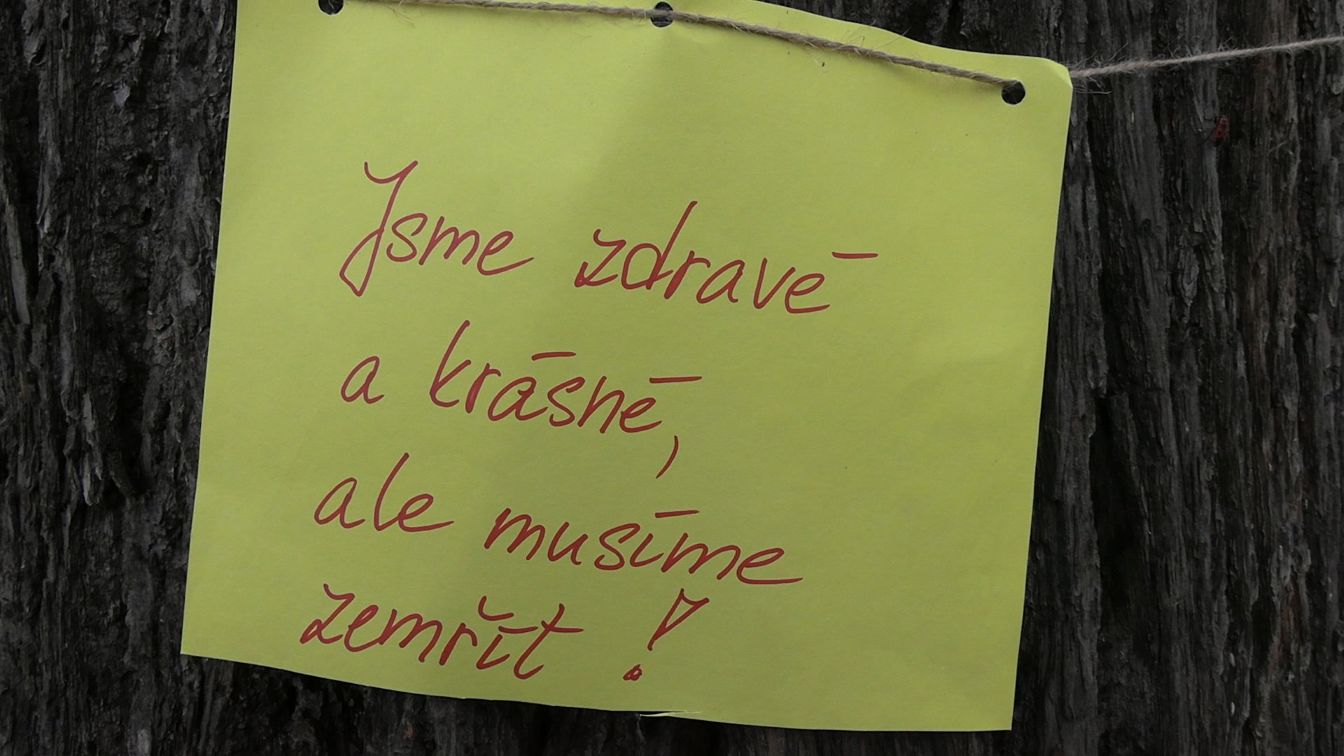 Jsme zdravé
a krásné,
ale musíme
zemřít!